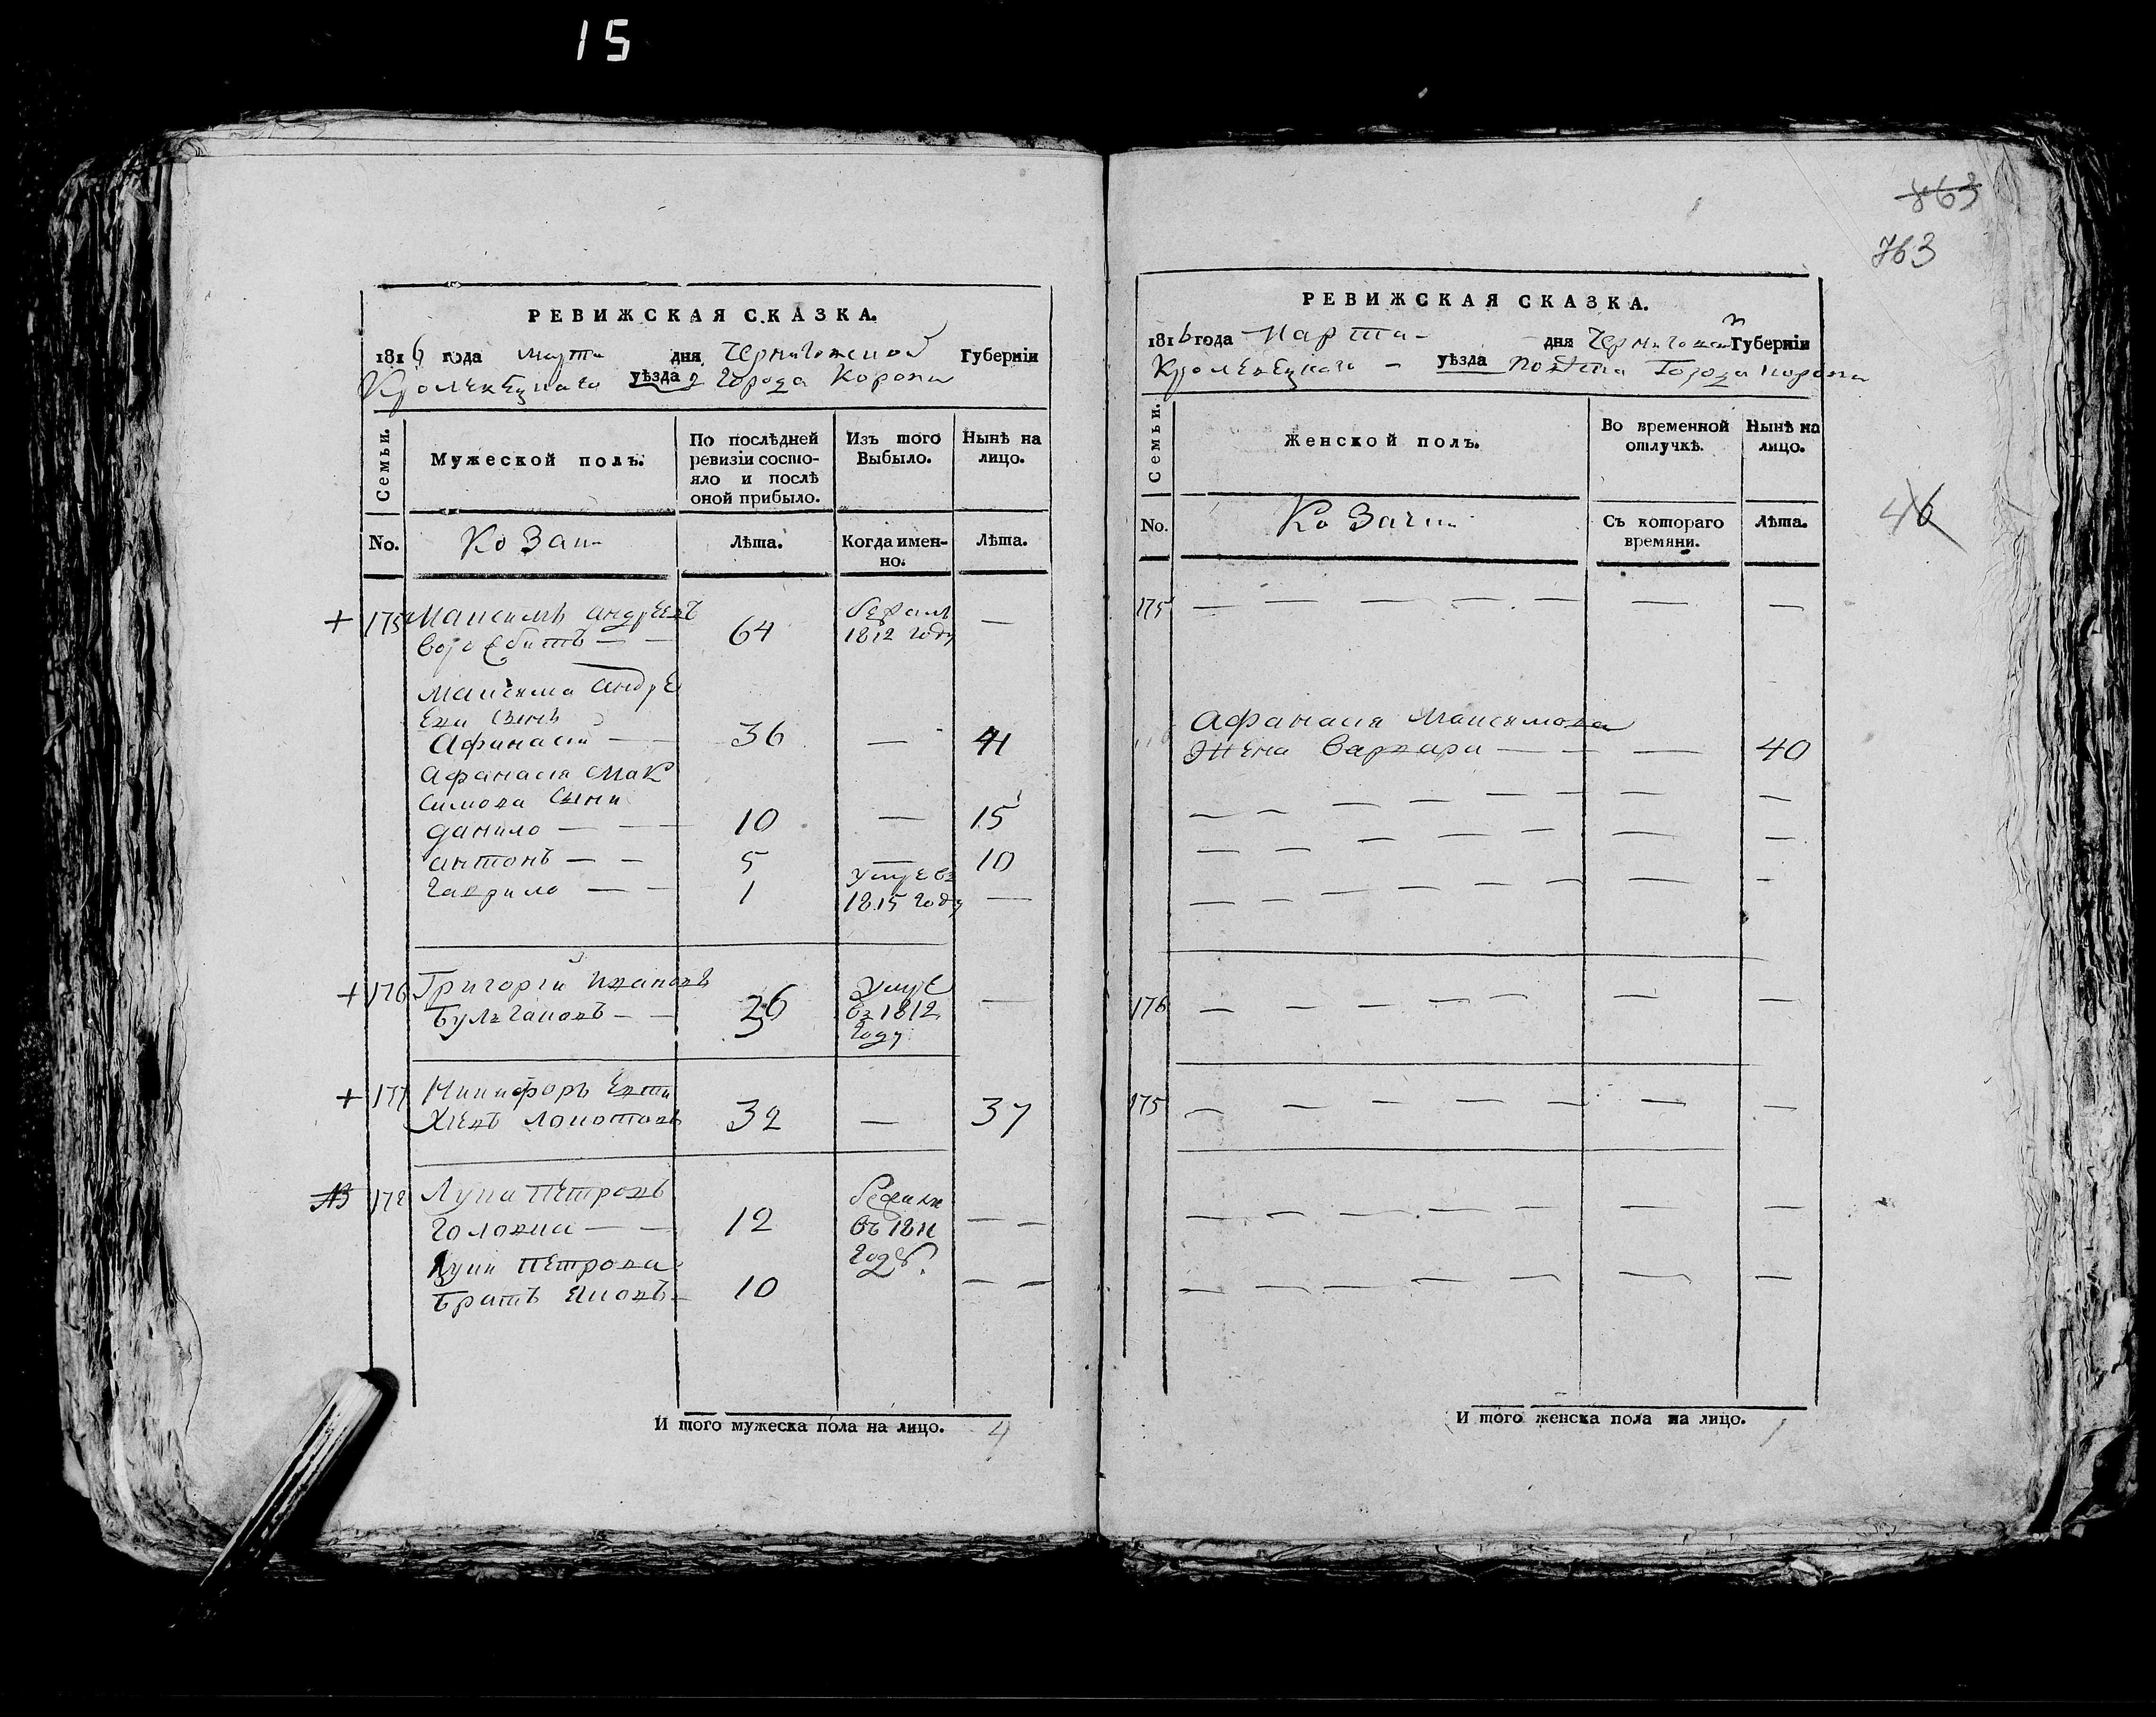 15
РЕВИЖСКАЯ СКАЗКА.
1816 года марта дня Черниговской Губернiи
Кролевецкаго уѣзда Города Коропа
Семьи.
Мужеской полъ.
По послѣдней ревизiи состо-
яло и послѣ
оной прибыло.
Изъ того
Выбыло.
Нынѣ на
лицо.
No.
Козаки
Лѣта.
Когда имен-
но.
Лѣта.
+ 175 Максимъ Андреевъ
64
1812 году —
Максима Андре
ева сынъ
Афанасiй — 36 — 41
Афанасiя Мак
симова сыни
Данило — — 10 — 15
Антонъ — — 5 — 10
Гаврило — — 1 умре въ
1815 году —
+ 176 Григорiй Ивановъ
36 умре
въ 1812
году —
+ 177 Никифоръ Евти
хiевъ 32 — 37
178 Лука Петровъ
Головка — — 12
въ 1811
году — —
Луки Петрова
братъ Яковъ — 10 — —
И того мужеска пола на лицо. 4
863
763
РЕВИЖСКАЯ СКАЗКА.
1816 года Марта дня Черниговской Губернiи
Кролевецкаго — уѣзда Повѣта Города Коропа
Семьи.
Женской полъ.
Во временной
отлучкѣ.
Нынѣ на
лицо.
46
No.
Козачки
Съ котораго
времяни.
Лѣта.
175 — — — — — — —
Афанасiя Максимова
жена Варвара — — — 40
176 — — — — — — —
175 — — — — — — —
И того женска пола на лицо. 1